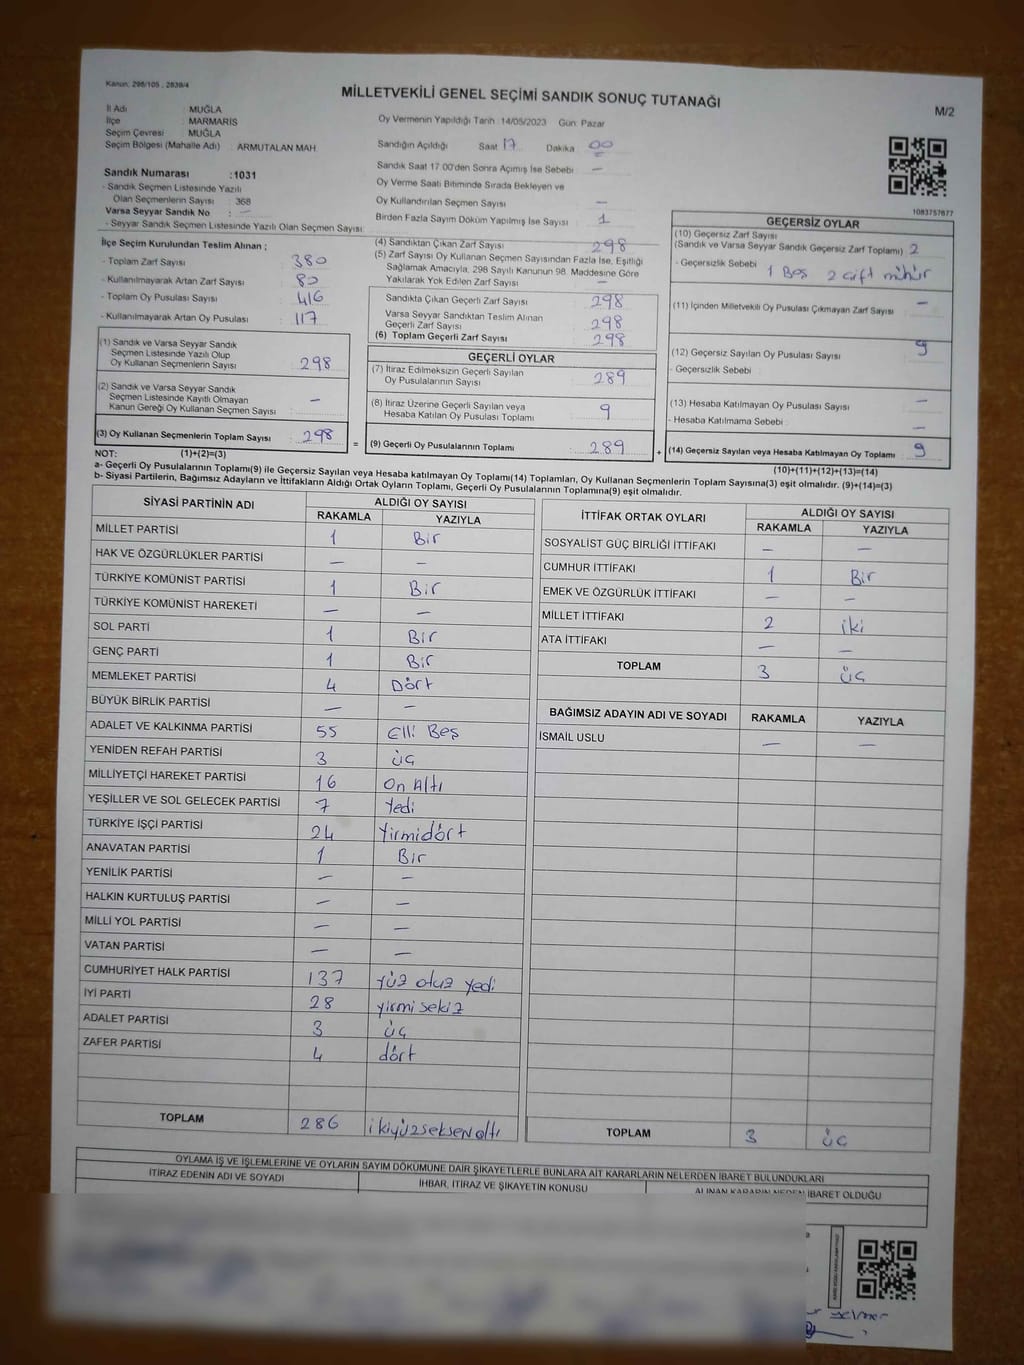 Kanun, 298/105 , 2839/4
MİLLETVEKİLİ GENEL SEÇİMİ SANDIK SONUÇ TUTANAĞI
M/2
İl Adı : MUĞLA
İlçe : MARMARİS
Seçim Çevresi : MUĞLA
Seçim Bölgesi (Mahalle Adı) : ARMUTALAN MAH.
Oy Vermenin Yapıldığı Tarih :14/05/2023 Gün: Pazar
Sandığın Açıldığı Saat 17 Dakika 00
Sandık Saat 17.00'den Sonra Açılmış İse Sebebi : —
Oy Verme Saati Bitiminde Sırada Bekleyen ve
Oy Kullandırılan Seçmen Sayısı : —
Birden Fazla Sayım Döküm Yapılmış İse Sayısı : 1
Sandık Numarası :1031
- Sandık Seçmen Listesinde Yazılı
Olan Seçmenlerin Sayısı : 368
Varsa Seyyar Sandık No : —
- Seyyar Sandık Seçmen Listesinde Yazılı Olan Seçmen Sayısı:
1083757877
İlçe Seçim Kurulundan Teslim Alınan ;
- Toplam Zarf Sayısı : 380
- Kullanılmayarak Artan Zarf Sayısı : 80
- Toplam Oy Pusulası Sayısı : 416
- Kullanılmayarak Artan Oy Pusulası : 117
(1) Sandık ve Varsa Seyyar Sandık
Seçmen Listesinde Yazılı Olup
Oy Kullanan Seçmenlerin Sayısı : 298
(2) Sandık ve Varsa Seyyar Sandık
Seçmen Listesinde Kayıtlı Olmayan
Kanun Gereği Oy Kullanan Seçmen Sayısı : —
(3) Oy Kullanan Seçmenlerin Toplam Sayısı : 298
(4) Sandıktan Çıkan Zarf Sayısı : 298
(5) Zarf Sayısı Oy Kullanan Seçmen Sayısından Fazla İse, Eşitliği
Sağlamak Amacıyla, 298 Sayılı Kanunun 98. Maddesine Göre
Yakılarak Yok Edilen Zarf Sayısı : —
Sandıkta Çıkan Geçerli Zarf Sayısı : 298
Varsa Seyyar Sandıktan Teslim Alınan
Geçerli Zarf Sayısı : 298
(6) Toplam Geçerli Zarf Sayısı : 298
GEÇERLİ OYLAR
(7) İtiraz Edilmeksizin Geçerli Sayılan
Oy Pusulalarının Sayısı : 289
(8) İtiraz Üzerine Geçerli Sayılan veya
Hesaba Katılan Oy Pusulası Toplamı : 9
= (9) Geçerli Oy Pusulalarının Toplamı : 289
GEÇERSİZ OYLAR
(10) Geçersiz Zarf Sayısı
(Sandık ve Varsa Seyyar Sandık Geçersiz Zarf Toplamı) : 2
- Geçersizlik Sebebi : 1 Boş 2 çift mühür
(11) İçinden Milletvekili Oy Pusulası Çıkmayan Zarf Sayısı : —
(12) Geçersiz Sayılan Oy Pusulası Sayısı : 9
- Geçersizlik Sebebi :
(13) Hesaba Katılmayan Oy Pusulası Sayısı : —
- Hesaba Katılmama Sebebi : —
+ (14) Geçersiz Sayılan veya Hesaba Katılmayan Oy Toplamı : 9
NOT: (1)+(2)=(3)
(10)+(11)+(12)+(13)=(14)
a- Geçerli Oy Pusulalarının Toplamı(9) ile Geçersiz Sayılan veya Hesaba katılmayan Oy Toplamı(14) Toplamları, Oy Kullanan Seçmenlerin Toplam Sayısına(3) eşit olmalıdır. (9)+(14)=(3)
b- Siyasi Partilerin, Bağımsız Adayların ve İttifakların Aldığı Ortak Oyların Toplamı, Geçerli Oy Pusulalarının Toplamına(9) eşit olmalıdır.
SİYASİ PARTİNİN ADI
ALDIĞI OY SAYISI
RAKAMLA YAZIYLA
MİLLET PARTİSİ 1 Bir
HAK VE ÖZGÜRLÜKLER PARTİSİ — —
TÜRKİYE KOMÜNİST PARTİSİ 1 Bir
TÜRKİYE KOMÜNİST HAREKETİ — —
SOL PARTİ 1 Bir
GENÇ PARTİ 1 Bir
MEMLEKET PARTİSİ 4 Dört
BÜYÜK BİRLİK PARTİSİ — —
ADALET VE KALKINMA PARTİSİ 55 Elli Beş
YENİDEN REFAH PARTİSİ 3 üç
MİLLİYETÇİ HAREKET PARTİSİ 16 On Altı
YEŞİLLER VE SOL GELECEK PARTİSİ 7 Yedi
TÜRKİYE İŞÇİ PARTİSİ 24 Yirmidört
ANAVATAN PARTİSİ 1 Bir
YENİLİK PARTİSİ — —
HALKIN KURTULUŞ PARTİSİ — —
MİLLİ YOL PARTİSİ — —
VATAN PARTİSİ — —
CUMHURİYET HALK PARTİSİ 137 Yüz otuz yedi
İYİ PARTİ 28 yirmi sekiz
ADALET PARTİSİ 3 üç
ZAFER PARTİSİ 4 dört
TOPLAM 286 ikiyüzseksenaltı
İTTİFAK ORTAK OYLARI
ALDIĞI OY SAYISI
RAKAMLA YAZIYLA
SOSYALİST GÜÇ BİRLİĞİ İTTİFAKI — —
CUMHUR İTTİFAKI 1 Bir
EMEK VE ÖZGÜRLÜK İTTİFAKI — —
MİLLET İTTİFAKI 2 iki
ATA İTTİFAKI — —
TOPLAM 3 üç
BAĞIMSIZ ADAYIN ADI VE SOYADI RAKAMLA YAZIYLA
İSMAİL USLU — —
TOPLAM 3 üç
OYLAMA İŞ VE İŞLEMLERİNE VE OYLARIN SAYIM DÖKÜMÜNE DAİR ŞİKAYETLERLE BUNLARA AİT KARARLARIN NELERDEN İBARET BULUNDUKLARI
İTİRAZ EDENİN ADI VE SOYADI
İHBAR, İTİRAZ VE ŞİKAYETİN KONUSU
ALINAN KARARIN NEDEN İBARET OLDUĞU